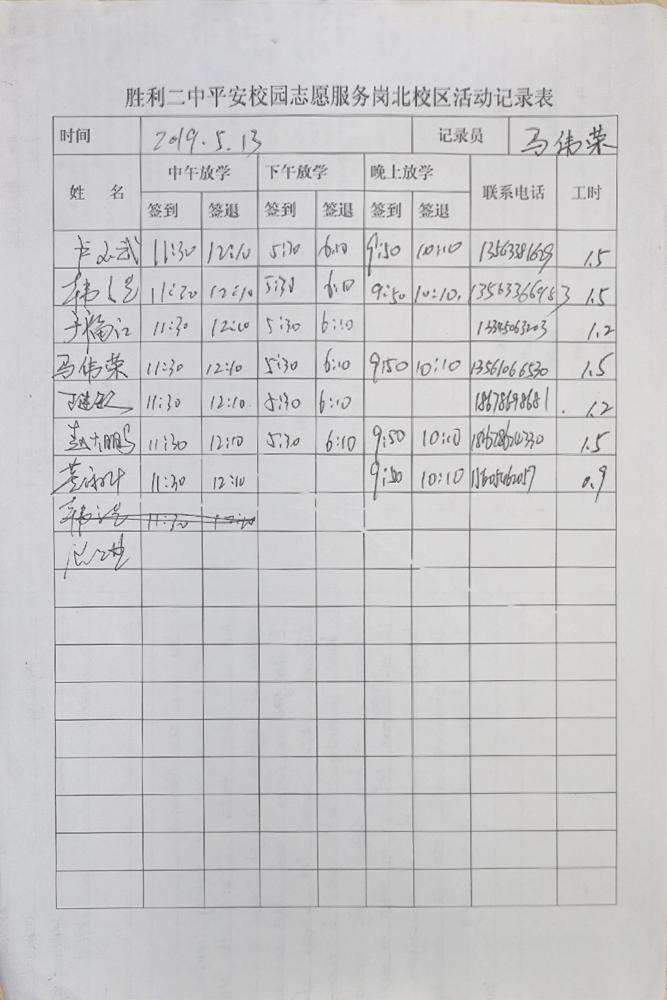 胜利二中平安校园志愿服务岗北校区活动记录表
时间 2019.5.13 记录员 马伟荣
姓 名 中午放学 下午放学 晚上放学 联系电话 工时
签到 签退 签到 签退 签到 签退
11:30 12:10 5:30 6:10 9:50 10:10 1.5
11:30 12:10 5:30 6:10 9:50 10:10. 13563366983 1.5
11:30 12:10 5:30 6:10 13345063203 1.2
马伟荣 11:30 12:10 5:30 6:10 9:50 10:10 13561066530 1.5
11:30 12:10 5:30 6:10 18678698681 1.2
11:30 12:10 5:30 6:10 9:50 10:10 18678624330 1.5
11:30 12:10 9:50 10:10 0.9
11:30 12:10